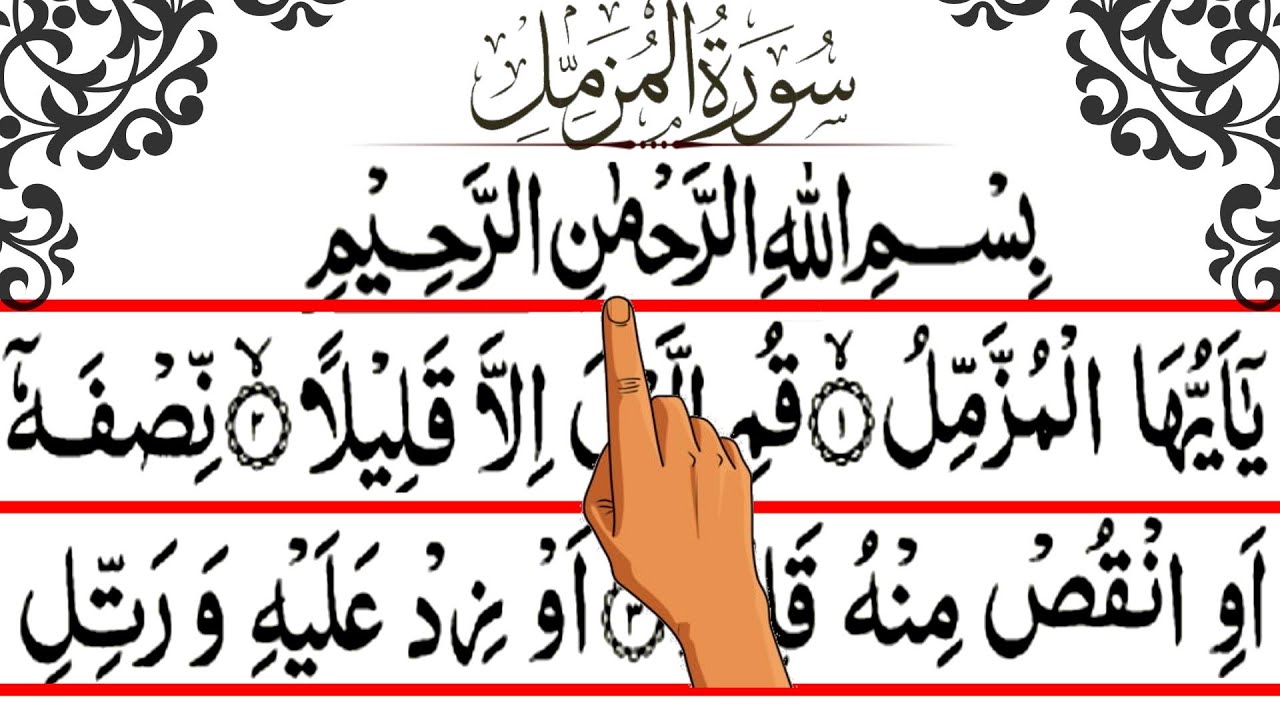 سُورَةُ الْمُزَّمِّلِ
بِسْمِ اللّٰهِ الرَّحْمٰنِ الرَّحِيْمِ
يٰۤاَيُّهَا الْمُزَّمِّلُ ۙ﴿۱﴾ قُمِ اِلَّا قَلِيْلًا ۙ﴿۲﴾ نِّصْفَهٗۤ
اَوِ انْقُصْ مِنْهُ ﴿۳﴾ اَوْ زِدْ عَلَيْهِ وَ رَتِّلِ